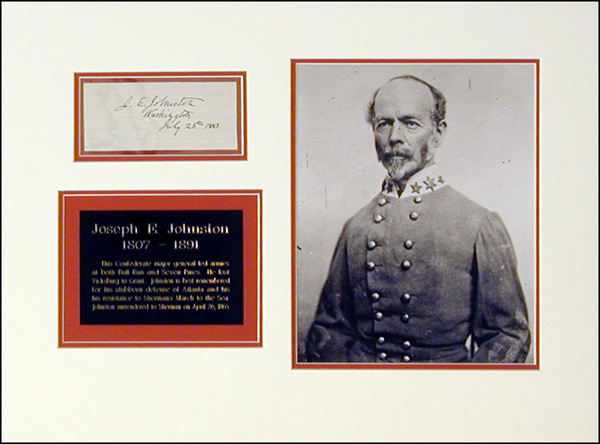 J. E. Johnston
Washington
July 28th 1883
Joseph E. Johnston
1807 - 1891
This Confederate major general led armies
at both Bull Run and Seven Pines. He lost
Vicksburg to Grant. Johnston is best remembered
for his stubborn defense of Atlanta and his
his resistance to Sherman's March to the Sea.
Johnston surrendered to Sherman on April 26, 1865.